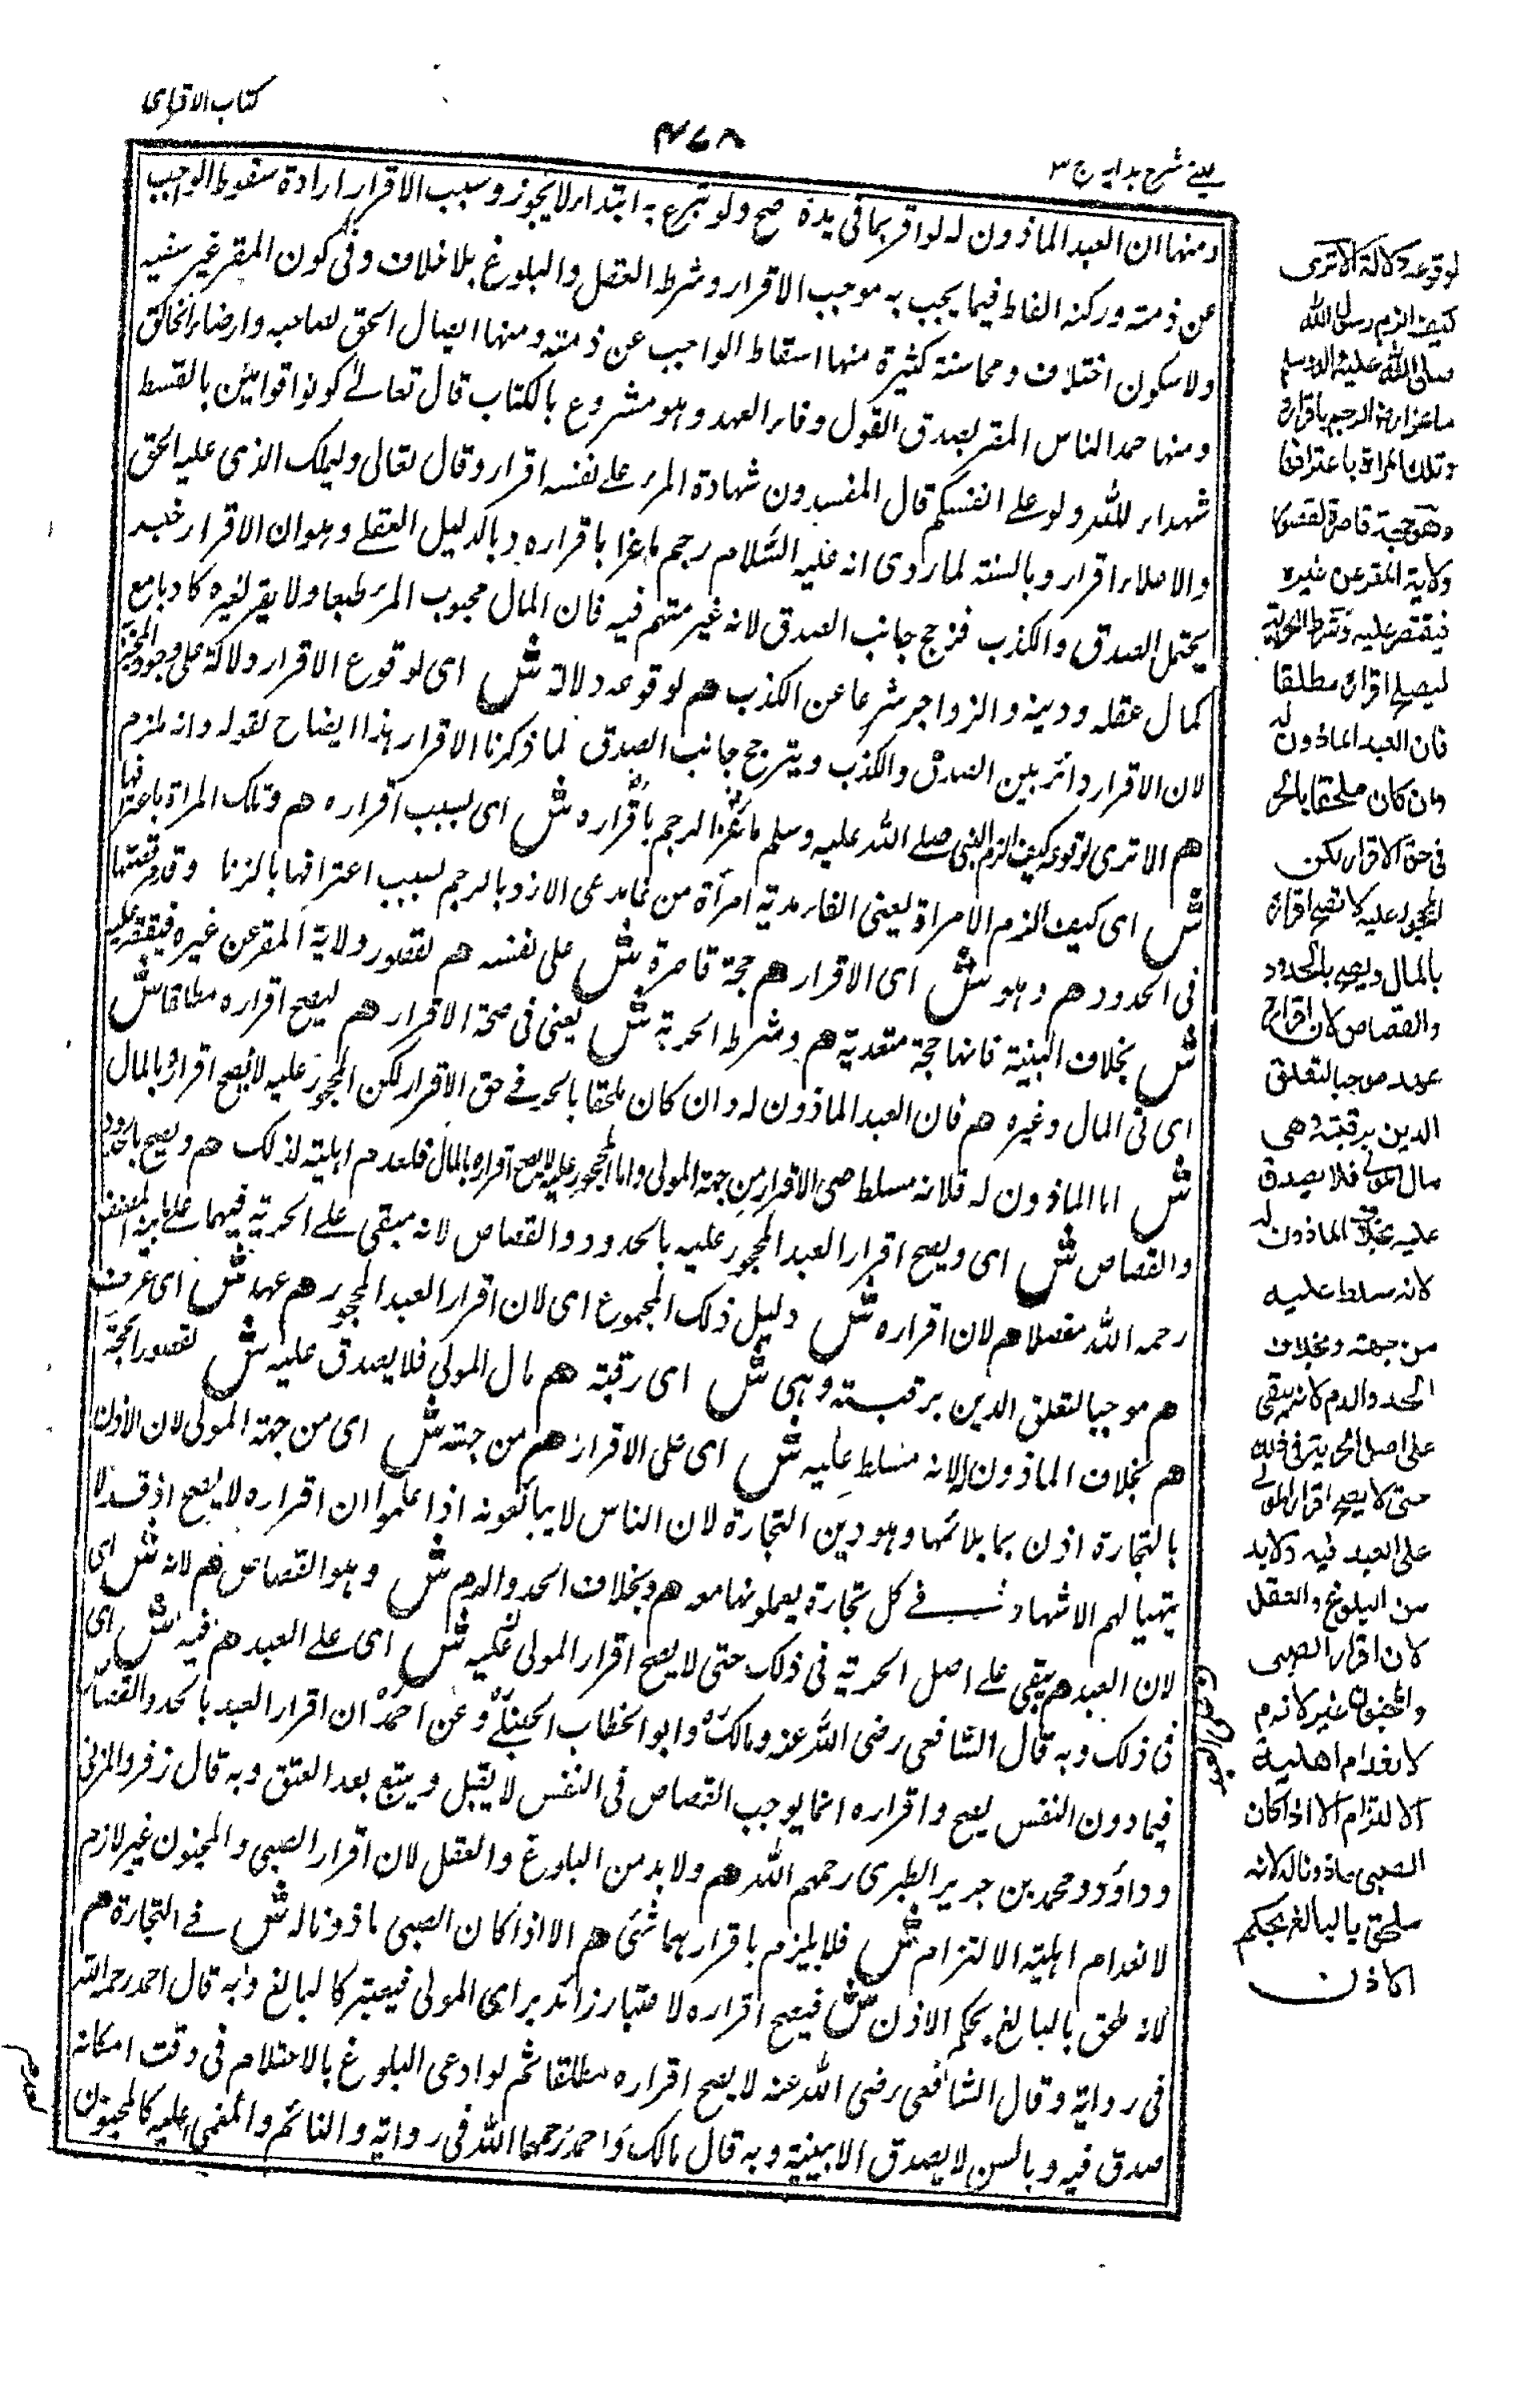 كتاب الاقرار
٤٦٨
عينى شرح هدايه ج ٣
ومنها ان العبد الماذون له لو اقر بما فى يده صح ولو تبرع به ابتداء لا يجوز وسبب الاقرار ارادة سقوط الواجب
عن ذمته وركنه الفاظ فيما يجب به موجب الاقرار وشرطه العقل والبلوغ بلا خلاف وفى كون المقر غير سفيه
ولا سكون اختلاف ومحاسنة كثيرة منها اسقاط الواجب عن ذمته ومنها ايصال الحق لصاحبه وارضاء الخالق
ومنها حمد الناس المقر بصدق القول وفاء العهد وهو مشروع بالكتاب قال تعالى كونوا قوامين بالقسط
شهداء لله ولو على انفسكم قال المفسرون شهادة المرء على نفسه اقرار وقال تعالى وليملل الذى عليه الحق
والاملاء اقرار وبالسنة لما روى انه عليه السلام رجم ماعزا باقراره وبالدليل العقلى وهو ان الاقرار خبر
يحتمل الصدق والكذب فرجح جانب الصدق لانه غير متهم فيه فان المال محبوب المرء طبعا ولا يقر لغيره كاذبا مع
كمال عقله ودينه والزواجر شرعا عن الكذب هم لوقوعه دلالة ش اى لوقوع الاقرار دلالة على وجود المخبر
لان الاقرار دائر بين الصدق والكذب ويترجح جانب الصدق لما ذكرنا الاقرار هذا ايضاح لقوله وانه ملزم
هم الا ترى لوقوعه كيف الزم النبى صلى الله عليه وسلم ماعزا الرجم باقراره ش اى بسبب اقراره هم وتلك المراة باعترافها
ش اى كيف الزم الامراة يعنى الغامدية امرأة من غامد حى الازد بالرجم بسبب اعترافها بالزنا وقد مر قصتها
فى الحدود هم وهو ش اى الاقرار هم حجة قاصرة ش على نفسه هم لقصور ولاية المقر عن غيره فيقتصر عليه
ش بخلاف البينة فانها حجة متعدية هم وشرط الحرية ش يعنى فى صحة الاقرار هم ليصح اقراره مطلقا ش
اى فى المال وغيره هم فان العبد الماذون له وان كان ملحقا بالحر فى حق الاقرار لكن المحجور عليه لا يصح اقراره بالمال
ش اما الماذون له فلانه مسلط على الاقرار من جهة المولى واما المحجور عليه لا يصح اقراره بالمال فلعدم اهليته لذلك هم ويصح بالحدود
والقصاص ش اى ويصح اقرار العبد المحجور عليه بالحدود والقصاص لانه مبقى على الحرية فيهما على ما بينه المصنف
رحمه الله مفصلا هم لان اقراره ش دليل ذلك المجموع اى لان اقرار العبد المحجور هم عهد ش اى عرف
هم موجبا لتعلق الدين برقبته وهى ش اى رقبته هم مال المولى فلا يصدق عليه ش لقصور الحجة
هم بخلاف الماذون له لانه مسلط عليه ش اى على الاقرار هم من جهته ش اى من جهة المولى لان الاذن
بالتجارة اذن بما يلائمها وهو دين التجارة لان الناس لا يبايعونه اذا علموا ان اقراره لا يصح اذ قد لا
يتهيا لهم الاشهاد فى كل تجارة يعملونها معه هم وبخلاف الحد والدم ش وهو القصاص هم لانه ش اى
لان العبد هم يبقى على اصل الحرية فى ذلك حتى لا يصح اقرار المولى عليه ش اى على العبد هم فيه ش اى
فى ذلك وبه قال الشافعى رضى الله عنه ومالك وابو الخطاب الحنبلى وعن احمد ان اقرار العبد بالحد والقصاص
فيما دون النفس يصح واقراره انما يوجب القصاص فى النفس لا يقبل ويتبع بعد العتق وبه قال زفر والمزنى
وداؤد ومحمد بن جرير الطبرى رحمهم الله هم ولا بد من البلوغ والعقل لان اقرار الصبى والمجنون غير لازم
لانعدام اهلية الالتزام ش فلا يلزم باقرارهما شئ هم الا اذا كان الصبى ماذونا له ش فى التجارة هم
لانه ملحق بالبالغ بحكم الاذن ش فيصح اقراره لاعتبار زائد براى المولى فيعتبر كالبالغ وبه قال احمد رحمه الله
فى رواية وقال الشافعى رضى الله عنه لا يصح اقراره مطلقا ثم لو ادعى البلوغ بالاحتلام فى وقت امكانه
صدق فيه وبالسن لا يصدق الا ببينة وبه قال مالك واحمد رحمهما الله فى رواية والنائم والمغمى عليه كالمجنون
لوقوعه دلالة الا ترى
كيف الزم رسول الله
صلى الله عليه واله وسلم
ماعزا رضى الرجم باقراره
وتلك المراة باعترافها
وهو حجة قاصرة لقصور
ولاية المقر عن غيره
فيقتصر عليه وشرط الحرية
ليصح اقراره مطلقا
فان العبد الماذون له
وان كان ملحقا بالحر
فى حق الاقرار لكن
المحجور عليه لا يصح اقراره
بالمال ويصح بالحدود
والقصاص لان اقراره
عهد موجبا لتعلق
الدين برقبته وهى
مال المولى فلا يصدق
عليه بخلاف الماذون له
لانه مسلط عليه
من جهته وبخلاف
الحد والدم لانه مبقى
على اصل الحرية فى ذلك
حتى لا يصح اقرار المولى
على العبد فيه ولابد
من البلوغ والعقل
لان اقرار الصبى
والمجنون غير لازم
لانعدام اهلية
الالتزام الا اذا كان
الصبى ماذونا له لانه
ملحق بالبالغ بحكم
الاذن